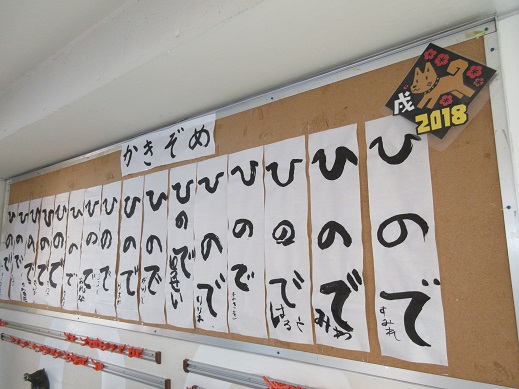 かきぞめ
戌
2018
ひので
すみれ
ひので
みゆ
ひので
はると
ひので
ひので
りりあ
ひので
ひので
ひので
ひので
ひので
ひので
ひので
ひので
ひので
ひので
ひので